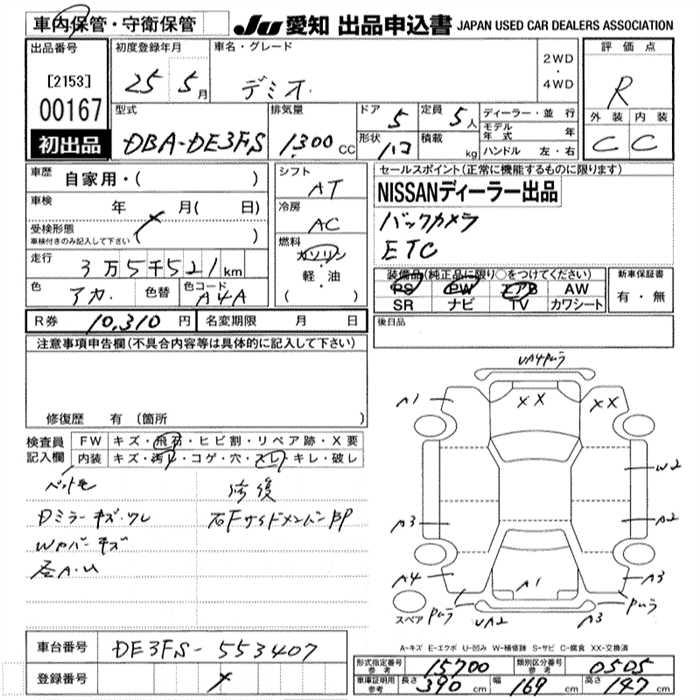 車内保管・守衛保管
JU 愛知 出品申込書 JAPAN USED CAR DEALERS ASSOCIATION
出品番号
[2153]
00167
初出品
初度登録年月
25 5月
車名・グレード
デミオ
2WD
・
4WD
評価点
R
外装 内装
C C
型式
DBA-DE3FS
排気量
1300 CC
ドア 5
形状 ハコ
定員 5人
積載 kg
ディーラー・並行
モデル年式 年
ハンドル 左・右
車歴 自家用・( )
車検 年 月( 日)
受検形態
車検付きのみ記入して下さい ( )
走行 3万5千521km
色 アカ 色替 色コード A4A
シフト
AT
冷房
AC
燃料
ガソリン
・
軽・油
( )
セールスポイント(正常に機能するものに限ります)
NISSANディーラー出品
バックカメラ
ETC
装備品(純正品に限り○をつけてください)
PS PW エアB AW
SR ナビ TV カワシート
新車保証書
有・無
R券 10,310円 名変期限 月 日
後日品
注意事項申告欄(不具合内容等は具体的に記入して下さい)
修復歴 有(箇所 )
検査員記入欄
FW キズ・飛石・ヒビ割・リペア跡・X要
内装 キズ・汚れ・コゲ・穴・スレ・キレ・破レ
ペット毛
修復
Dミラーキズ・ワレ
右FサイドメンバーBP
Wカバーキズ
UA4
A1
XX
XX
W2
A3
A2
A4
A1
A3
UA2
A3
スペア
A-キズ E-エクボ U-凹み W-補修跡 S-サビ C-腐食 XX-交換済
車台番号 DE3FS-553407
登録番号
形式指定番号
参考
15700
類別区分番号
参考
0505
車庫証明用
参考
長さ 390cm 幅 169cm 高さ 147cm